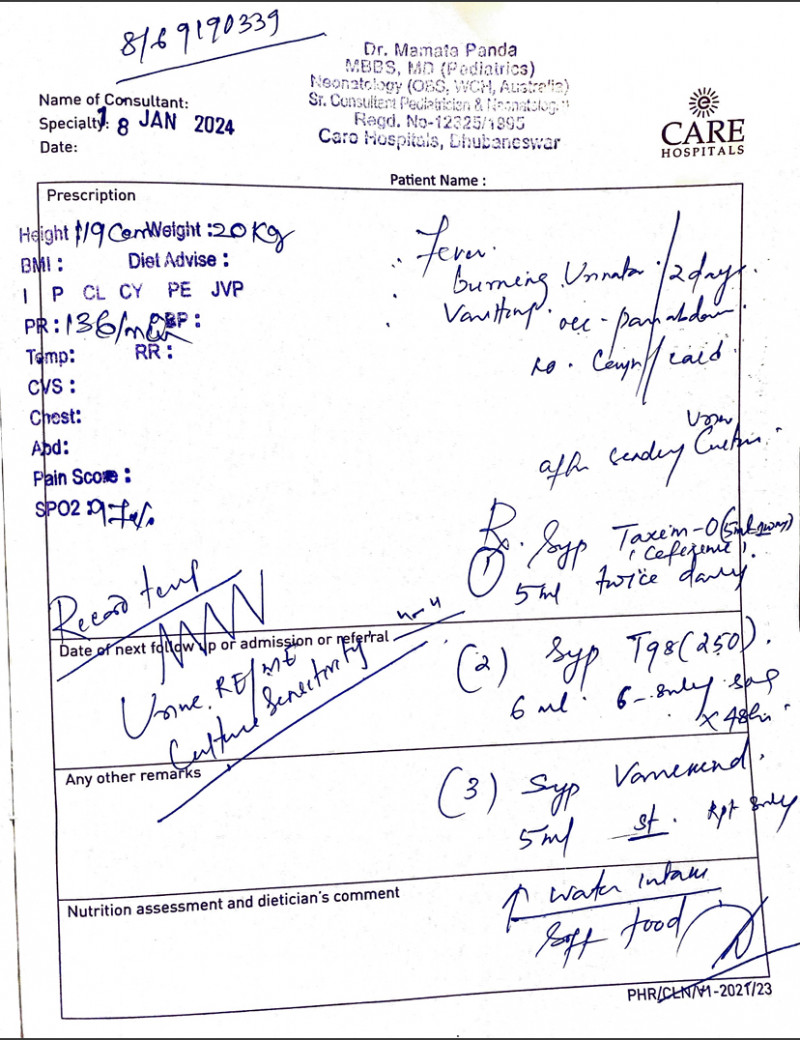 8/6 9190339
Dr. Mamata Panda
MBBS, MD (Pediatrics)
Neonatology (OBS, WCH, Australia)
Sr. Consultant Pediatrician &
Regd. No-12325/1995
Care Hospitals, Bhubaneswar
Name of Consultant:
Specialty:
18 JAN 2024
Date:
CARE
HOSPITALS
Patient Name :
Prescription
Height 119 cm Weight : 20 Kg
BMI : Diet Advise :
I P CL CY PE JVP
PR : 136/min BP :
Temp: RR :
CVS :
Chest:
Abd:
Pain Score :
SPO2 : 97%
Fever.
burning /2 days.
Vomiting. occ - pain abdomen
no. Cough/cold.
Urine
after sending Culture.
Rx. Syp Taxim-O
(1) 5ml twice daily
Record temp
Date of next follow up or admission or referral
Urine. RE/ME
Culture Sensitivity
(2) Syp T98 (250).
6 ml. 6-hrly
x 48hr.
Any other remarks
(3) Syp
5ml st. Rpt
Nutrition assessment and dietician's comment
↑ water intake
Soft food
PHR/CLN/V1-2021/23